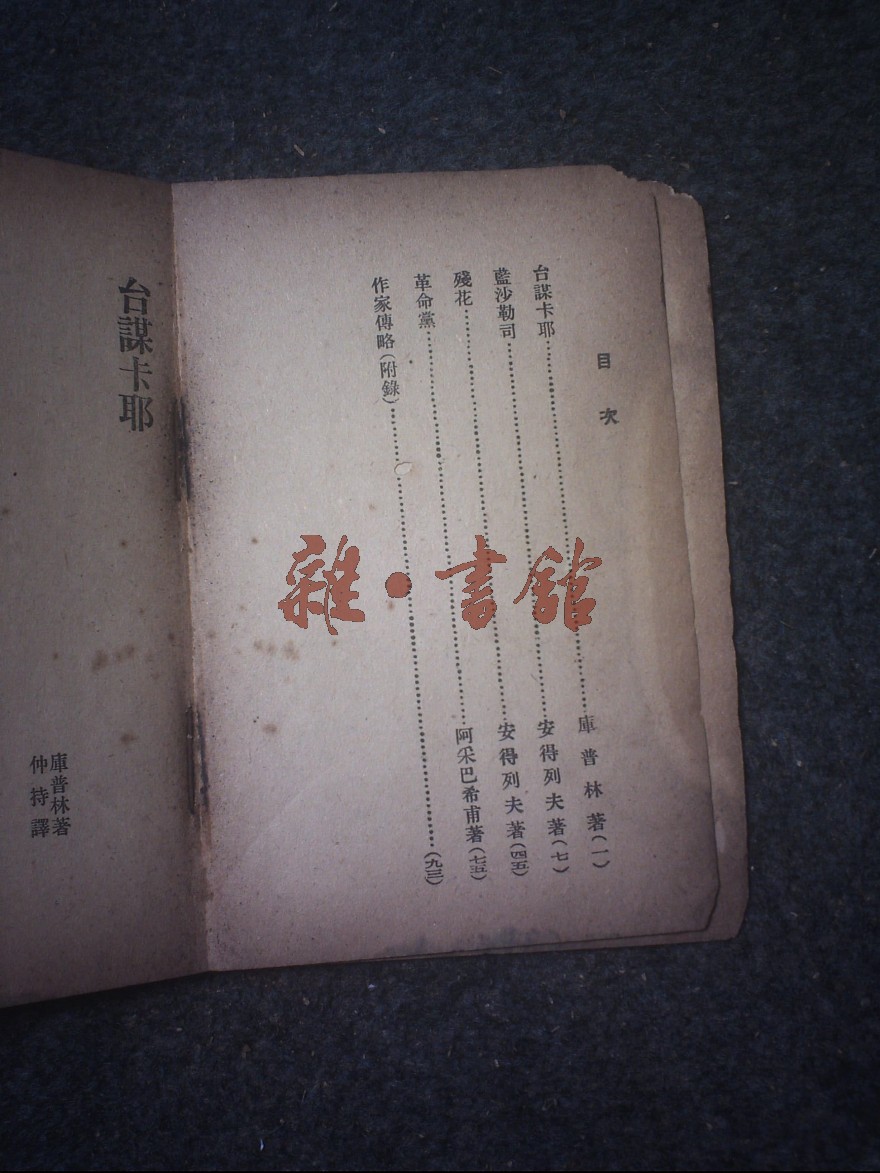 目次
台謀卡耶……庫普林著(一)
藍沙勒司……安得列夫著(七)
殘花……安得列夫著(四五)
革命黨……阿采巴希甫著(七五)
作家傳略(附錄)……(九三)
台謀卡耶
庫普林著
仲持譯
雜·書館